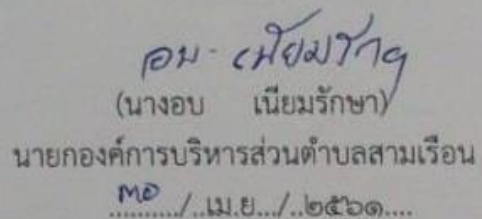 อบ เนียมรักษา
(นางอบ เนียมรักษา)
นายกองค์การบริหารส่วนตำบลสามเรือน
........./..เม.ย.../..๒๕๖๑....